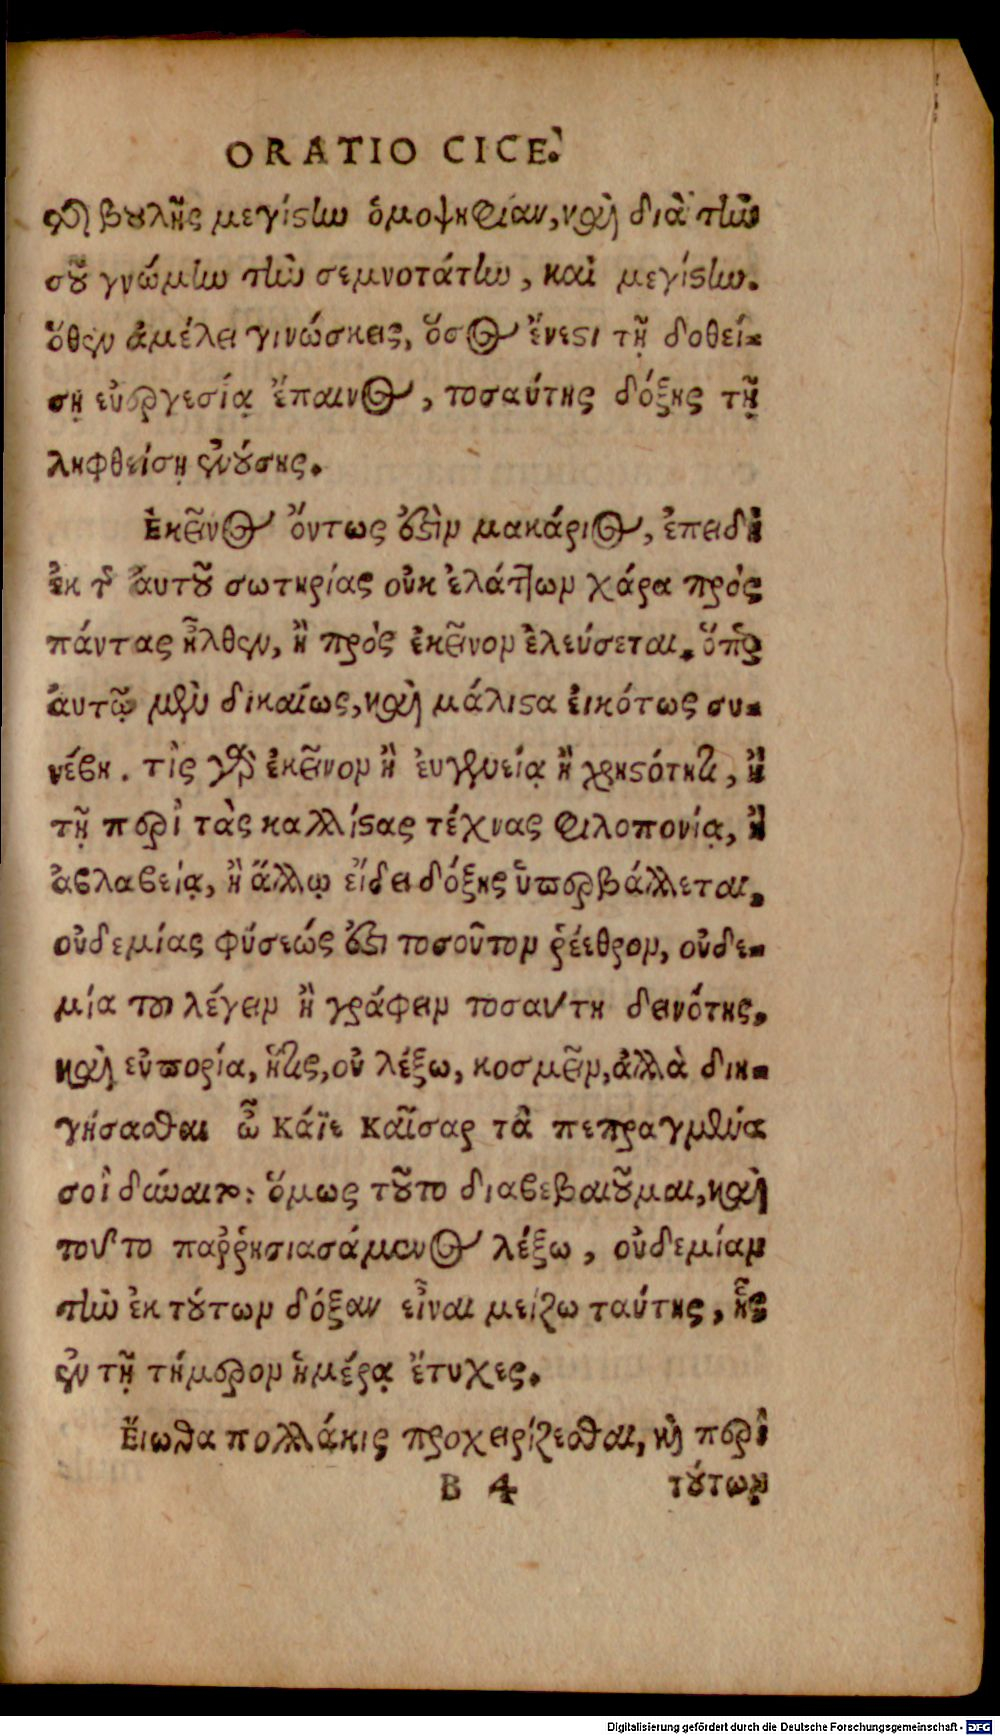 ORATIO CICE.
τῆς βουλῆς μεγίστην ὁμοψηφίαν, καὶ διὰ τὴν
σοῦ γνώμην τὴν σεμνοτάτην, καὶ μεγίστην.
ὅθεν ἀμέλει γινώσκεις, ὅσος ἔνεστι τῇ δοθεί-
σῃ εὐεργεσίᾳ ἔπαινος, τοσαύτης δόξης τῇ
ληφθείσῃ ἐνούσης.
Ἐκεῖνος ὄντως ἐστὶν μακάριος, ἐπειδὴ
ἐκ τῆς ἁυτοῦ σωτηρίας οὐκ ἐλάττων χάρα πρὸς
πάντας ἦλθεν, ἢ πρὸς ἐκεῖνον ἐλεύσεται. ὅπερ
ἀυτῷ μὲν δικαίως, καὶ μάλιστα ἐικότως συ-
νέβη. τὶς γὰρ ἐκεῖνον ἢ ἐυγενείᾳ ἢ χρηστότητι, ἢ
τῇ περὶ τὰς καλλίστας τέχνας φιλοπονίᾳ, ἢ
ἀβλαβείᾳ, ἢ ἄλλῳ εἴδει δόξης ὑπερβάλλεται.
οὐδεμίας φύσεώς ἐστι τοσοῦτον ῥέεθρον, οὐδε-
μία του λέγειν ἢ γράφειν τοσαυτη δεινότης,
καὶ εὐπορία, ἥτις, οὐ λέξω, κοσμεῖν, ἀλλὰ διη-
γήσασθαι ὦ Κάϊε Καῖσαρ τὰ πεπραγμένα
σοὶ δύναιτο: ὅμως τοῦτο διαβεβαιοῦμαι, καὶ
τουτο παῤῥησιασάμενος λέξω, οὐδεμίαν
τὴν ἐκ τούτων δόξαν εἶναι μείζω ταύτης, ἧς
ἐν τῇ τήμερον ἡμέρᾳ ἔτυχες.
Ἔιωθα πολλάκις προχειρίζεσθαι, καὶ περὶ
B 4 τούτων
Digitalisierung gefördert durch die Deutsche Forschungsgemeinschaft - DFG